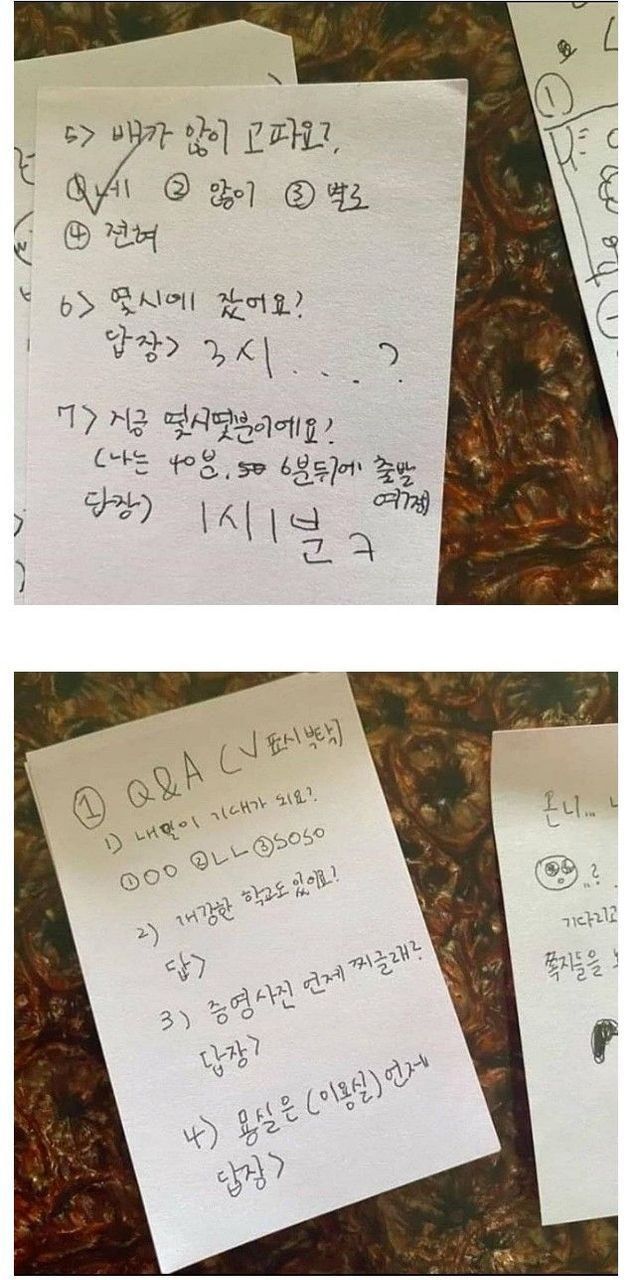 5> 배가 않이 고파요?
①네 ② 않이 ③ 별로
④ 전혀
6> 몇시에 잤어요?
답장> 3시....?
7> 지금 몇시몇분이에요?
(나는 40분, 6분뒤에 출발
예정)
답장> 1시1분ㅋ
①
① Q&A (V 표시 부탁)
1) 내일이 기대가 되요?
①OO ②ㄴㄴ ③SOSO
2) 개강한 학교도 있어요?
답>
3) 증명사진 언제 찌글래?
답장>
4) 용실은 (미용실) 언제
답장>
온니...
..?
기다리고
쪽지들을